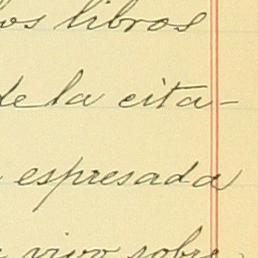 los libros
de la cita-
espresada
vivo sobre